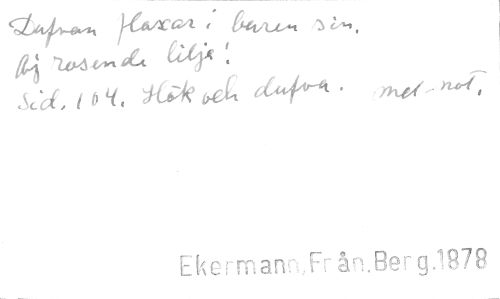 Dufvan flaxar i buren sin.
Aj rosende lilja!
Sid. 104. Hök och dufva. mel-not.
Ekermann, Från. Berg. 1878